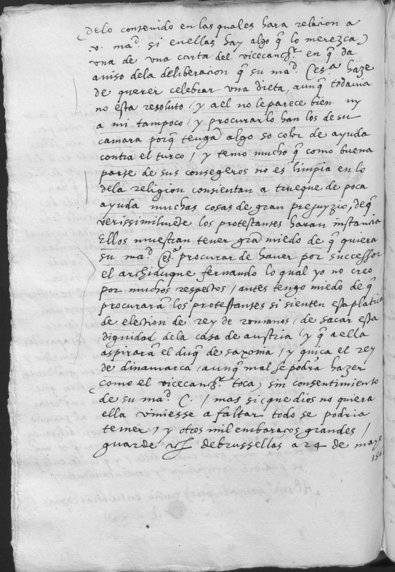 delo contenido en las quales hara relacion a
v. mag.d si en ellas hay algo q̃ lo merezca,
una de una carta del vicecancº en q̃ da
aviso dela deliberacion q̃ su mag.d Ces.a haze
de querer celebrar una dieta, aunq̃ todavia
no esta resoluto, y a el no le parece bien ny
a mi tampoco, y procurarlo han los de su
camara porq̃ tenga algo so color de ayuda
contra el turco, y temo mucho q̃ como buena
parte de sus consegeros no es limpia en lo
dela religion consientan a trueque de poca
ayuda muchas cosas de gran prejuyzio, de q̃
verissimilmente los protestantes haran instancia
Ellos muestran tener gran miedo de q̃ quiera
su mag.d C.a procurar de haver por successor
el archiduque fernando lo qual yo no creo
por muchos respetos, antes tengo miedo de q̃
procuraran los protestantes si sienten esta platica
de election de rey de romanos, de sacar esta
dignidad dela casa de austria, y q̃ a ella
aspirara el duq̃ de saxonia, y quiça el rey
de dinamarca, aunq̃ mal se podra hazer
como el vicecancº toca, sin consentimiento
de su mag.d C. / mas si que dios no quiera
ella viniesse a faltar todo se podria
temer, y otros mil embaraços grandes,
guarde debrussellas a 24 de mayo